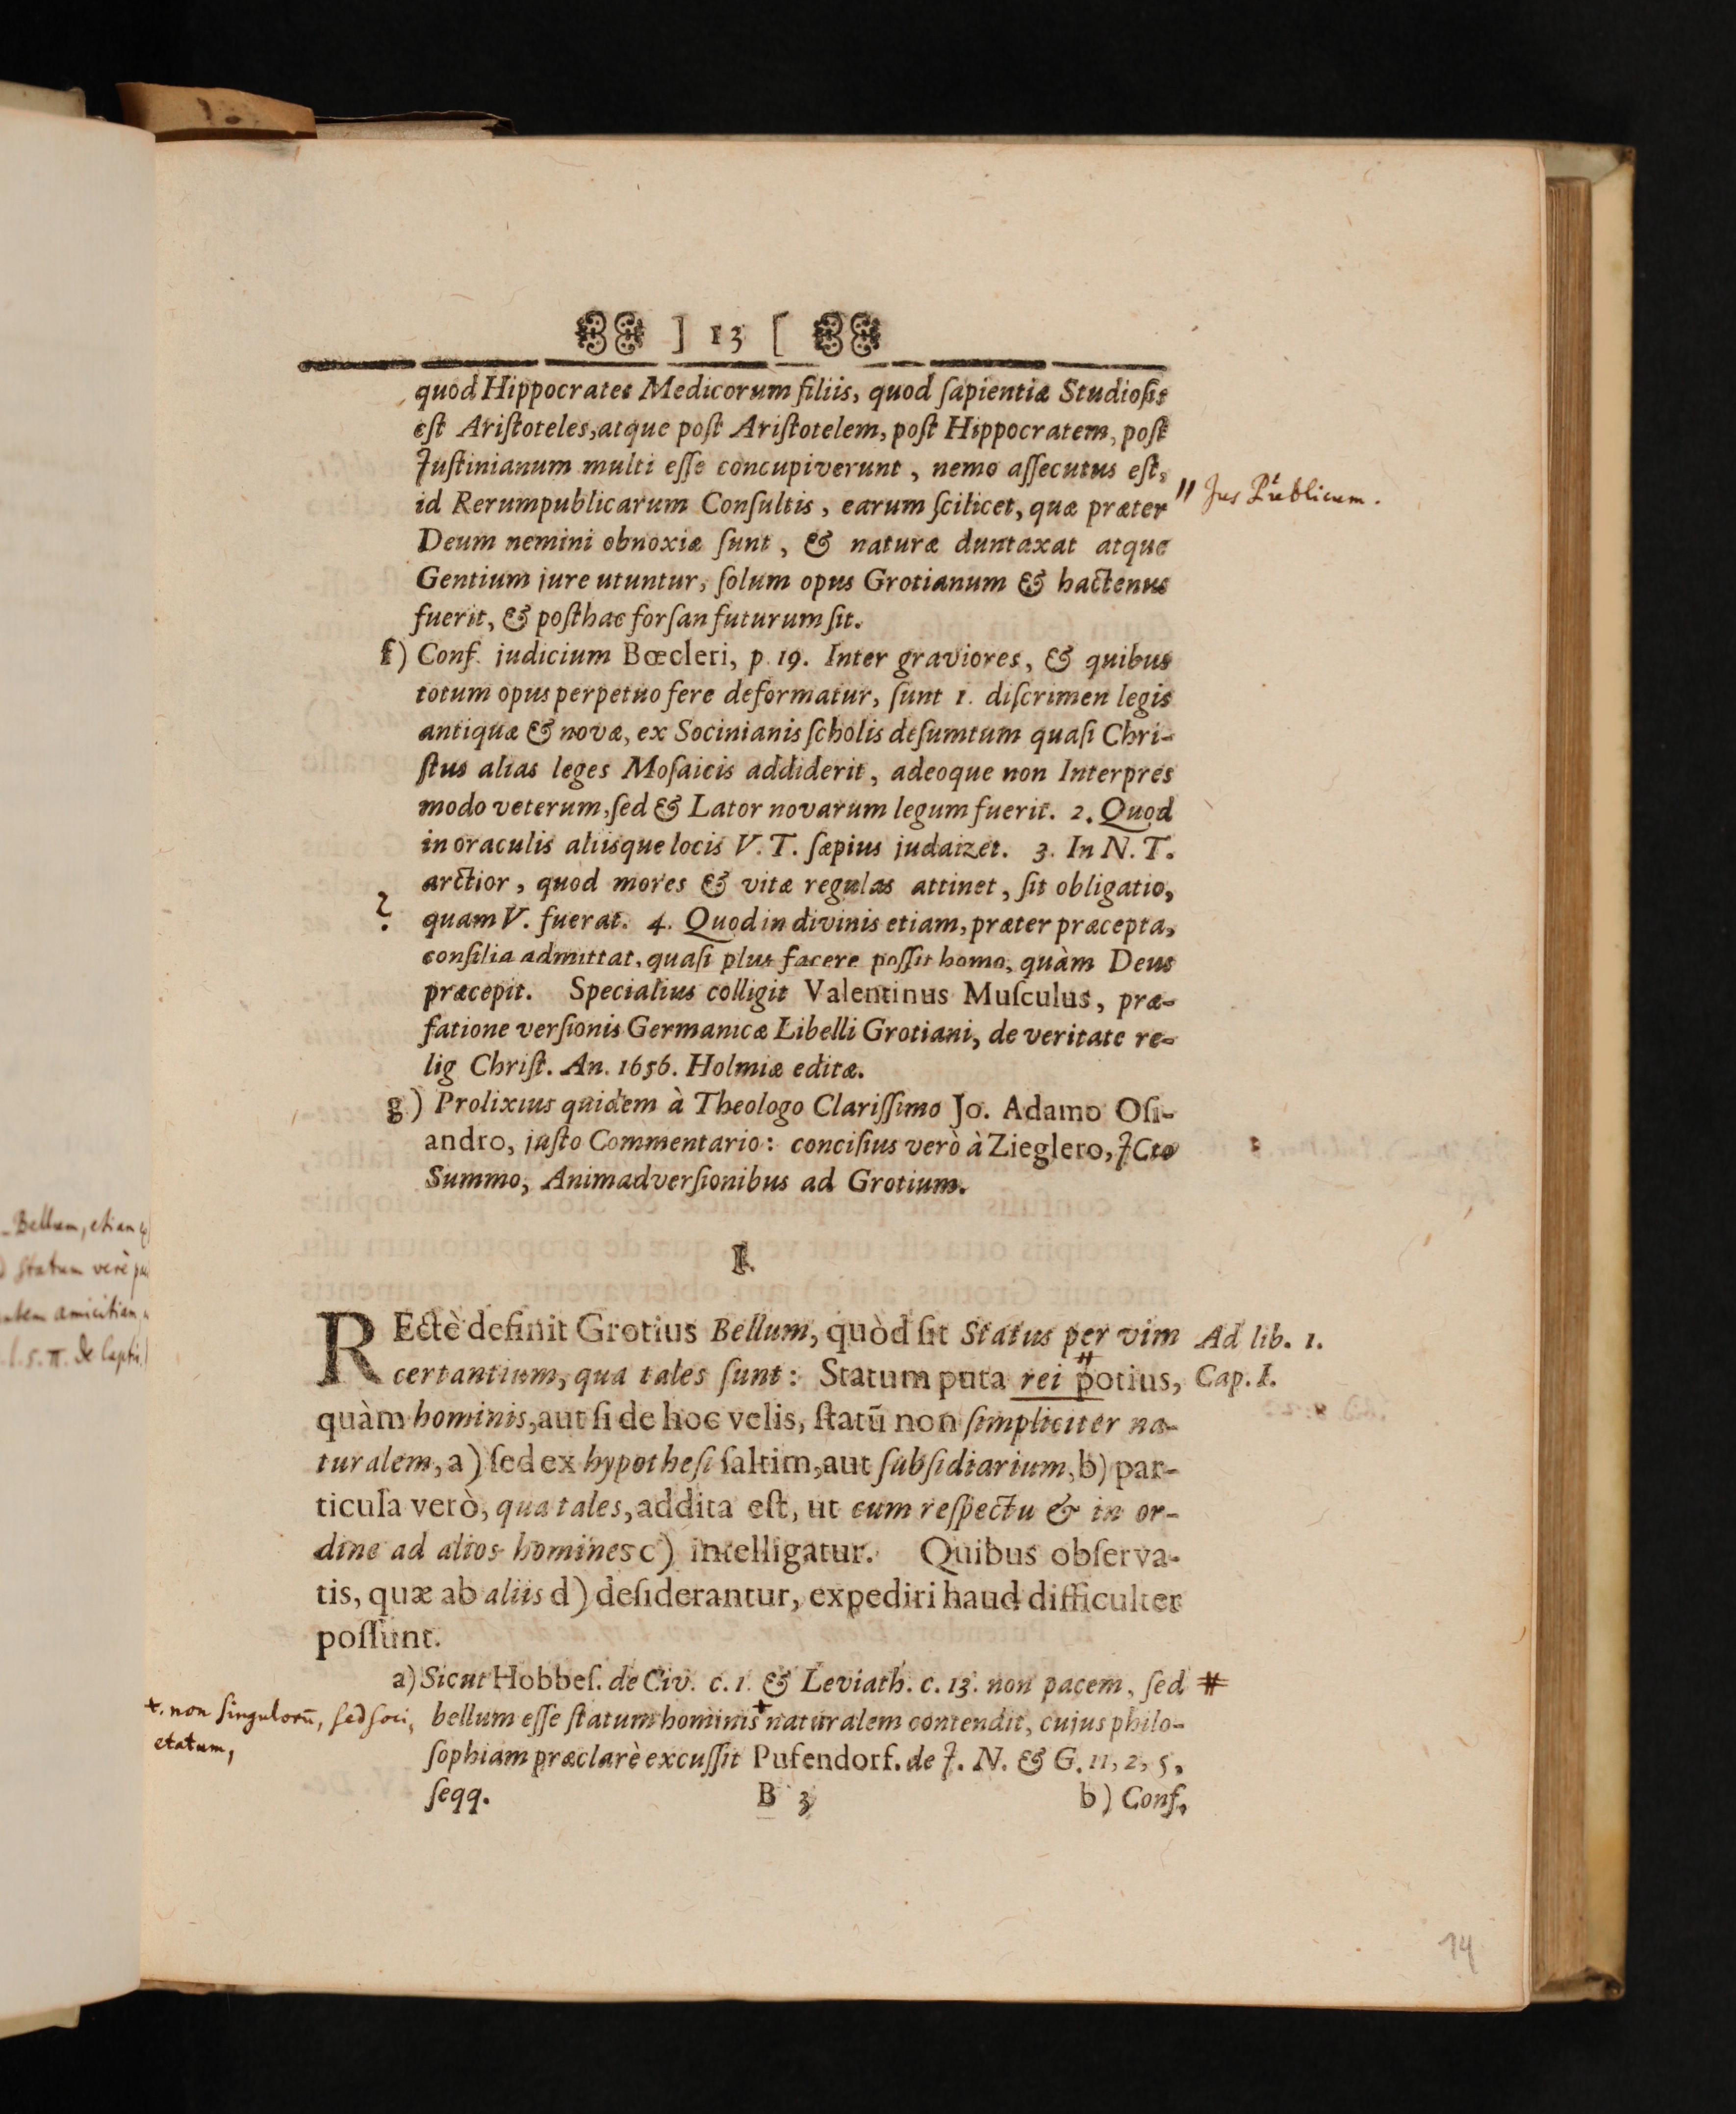 ] 13 [
quod Hippocrates Medicorum filiis, quod ſapientiæ Studioſis
eſt Ariſtoteles, atque poſt Ariſtotelem, poſt Hippocratem, poſt
Juſtinianum multi eſſe concupiverunt, nemo aſſecutus eſt,
id Rerumpublicarum Conſultis, earum ſcilicet, quæ præter
" Jus Publicum.
Deum nemini obnoxiæ ſunt, & naturæ duntaxat atque
Gentium jure utuntur, ſolum opus Grotianum & hactenus
fuerit, & poſthac forſan futurum ſit.
f) Conf. judicium Bœcleri, p. 19. Inter graviores, & quibus
totum opus perpetuo fere deformatur, ſunt 1. diſcrimen legis
antiquæ & novæ, ex Socinianis ſcholis deſumtum quaſi Chri-
ſtus alias leges Moſaicis addiderit, adeoque non Interpres
modo veterum, ſed & Lator novarum legum fuerit. 2. Quod
in oraculis aliisque locis V. T. ſæpius judaizet. 3. In N. T.
arctior, quod mores & vitæ regulas attinet, ſit obligatio,
? quam V. fuerat. 4. Quod in divinis etiam, præter præcepta,
conſilia admittat, quaſi plus facere poſſit homo, quàm Deus
præcepit. Specialius colligit Valentinus Muſculus, præ-
fatione verſionis Germanicæ Libelli Grotiani, de veritate re-
lig Chriſt. An. 1656. Holmiæ editæ.
g) Prolixius quidem à Theologo Clariſſimo Jo. Adamo Oſi-
andro, juſto Commentario: conciſius verò à Zieglero, JCto
Summo, Animadverſionibus ad Grotium.
I.
REctè definit Grotius Bellum, quòd ſit Status per vim
Ad lib. 1.
certantium, qua tales ſunt: Statum puta rei # potius,
Cap. I.
quàm hominis, aut ſi de hoc velis, ſtatū non ſimpliciter na-
turalem, a) ſed ex hypotheſi ſaltim, aut ſubſidiarium, b) par-
ticula verò, qua tales, addita eſt, ut cum reſpectu & in or-
dine ad alios homines c) intelligatur. Quibus obſerva-
tis, quæ ab aliis d) deſiderantur, expediri haud difficulter
poſſunt.
a) Sicut Hobbeſ. de Civ. c. 1. & Leviath. c. 13. non pacem, ſed #
bellum eſſe ſtatum hominis + naturalem contendit, cujus philo-
+. non ſingulorū, ſed ſoci,
etatum,
ſophiam præclarè excuſſit Pufendorf. de J. N. & G. 11, 2, 5,
ſeqq. B 3 b) Conf.
Bellum, etiam
Statum verè
amicitiam
l. 5. π. de Capti.
14